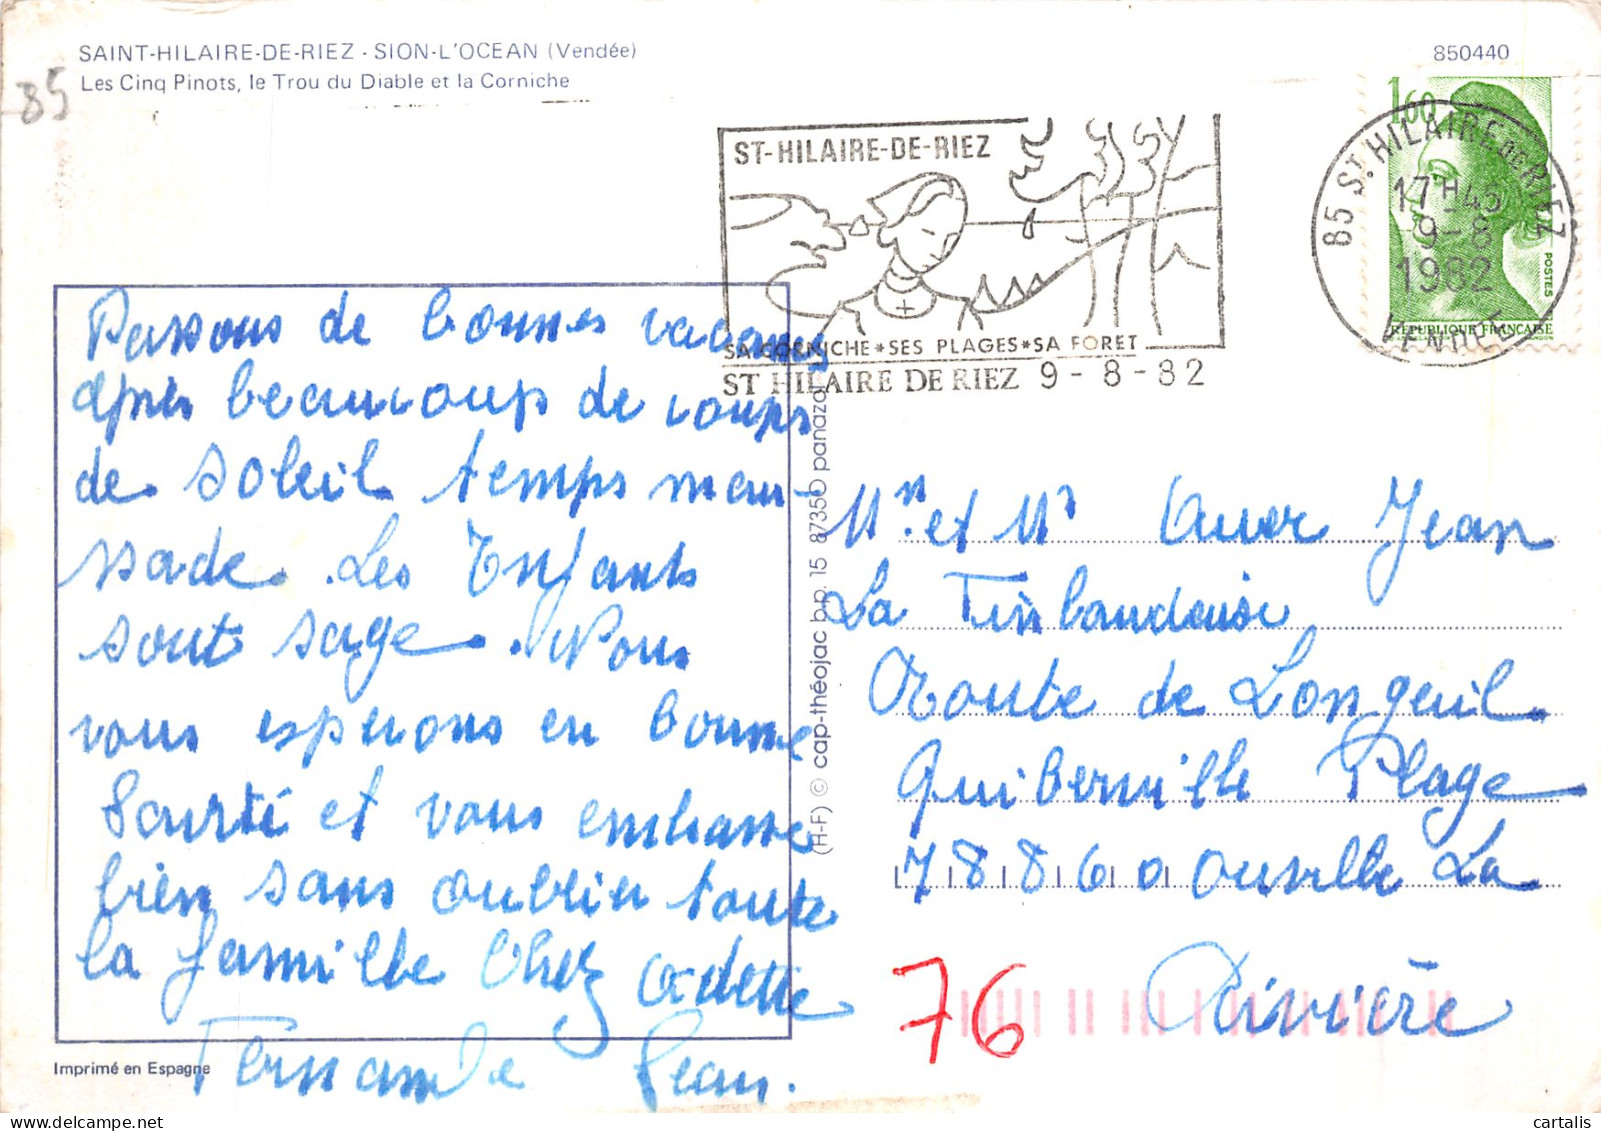 SAINT-HILAIRE-DE-RIEZ - SION-L'OCEAN (Vendée)
Les Cinq Pinots, le Trou du Diable et la Corniche
850440
85
1,60
POSTES
REPUBLIQUE FRANÇAISE
85 ST HILAIRE DE RIEZ
17H45
9-8
1982
VENDEE
ST-HILAIRE-DE-RIEZ
SA CORNICHE*SES PLAGES*SA FORET
ST HILAIRE DE RIEZ 9-8-82
Passons de bonnes vacances
après beaucoup de coups
de soleil temps maus-
sade. Les Enfants
sont sage. Nous
vous esperons en bonne
Santé et vous embrasse
bien sans oublier toute
la famille Chez Odette
Fernande Jean.
(H-F) © cap-théojac b.p. 15 87350 panazol
Mn. et Mr Auer Jean
La
Route de Longeuil
Quiberville Plage
78860 Ouville La
Rivière
76
Imprimé en Espagne
cartalis
delcampe.net